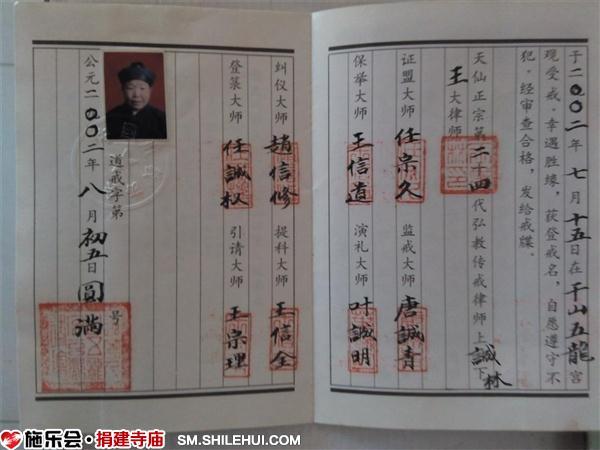 于二〇〇二年七月十五日在千山五龙宫
现受戒，幸遇胜缘，获登戒名，自愿遵守不
犯，经审查合格，发给戒牒。
天仙正宗第二十四代弘教传戒律师上诚下林
王大律师
证盟大师 任宗久 监戒大师 唐誠青
保举大师 王信道 演礼大师 叶誠明
纠仪大师 趙信修 提科大师 王信全
登箓大师 任誠权 引请大师 王宗理
道戒字第 号
公元二〇〇二年八月初五日圓满
施乐会·捐建寺庙 SM.SHILEHUI.COM